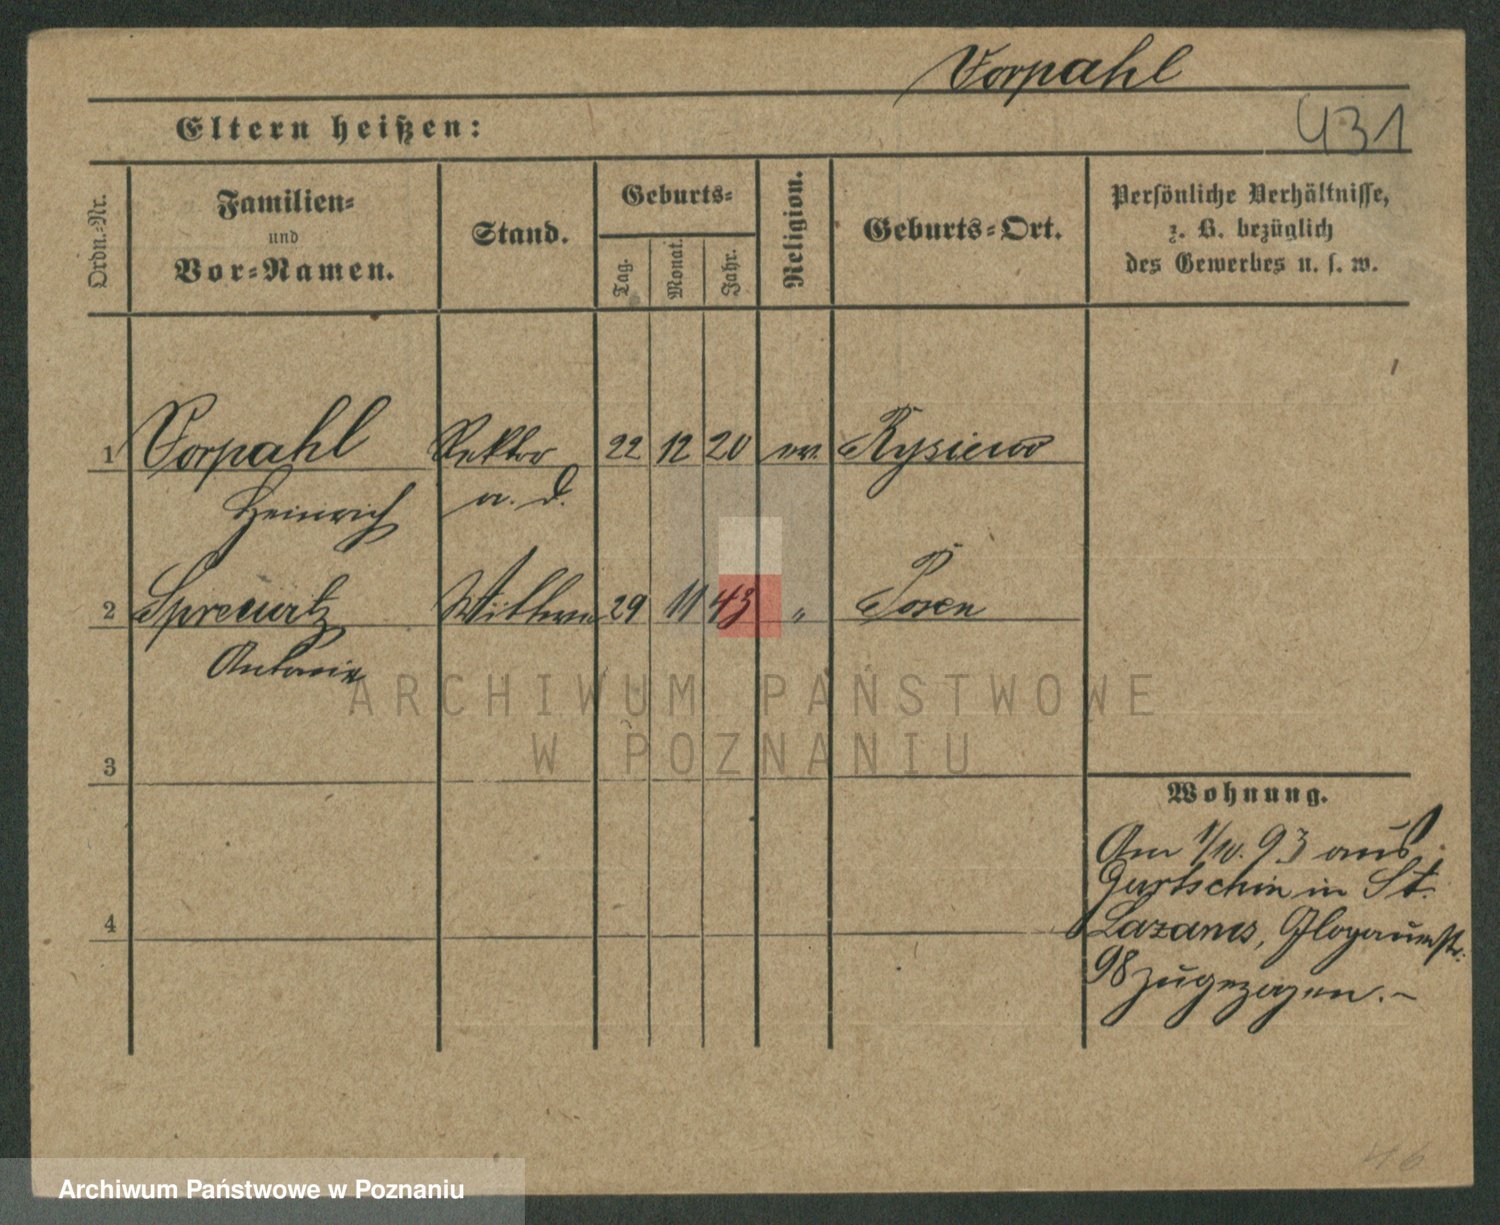 Vorpahl
431
Eltern heißen:
Ordn.-Nr.
Familien-
und
Vor-Namen.
Stand.
Geburts-
Tag.
Monat.
Jahr.
Religion.
Geburts-Ort.
Persönliche Verhältnisse,
z. B. bezüglich
des Gewerbes u. s. w.
1 Vorpahl Rektor 22 12 20 ev. Rysiewo
Heinrich a. D.
2 Spreuwitz Wittwe 29 11 43 " Posen
Antonie
3
Wohnung.
Am 1/10. 93 aus
Gurtschin in St.
4
Lazarus, Glogauerstr.
98 zugezogen.-
46
ARCHIWUM PAŃSTWOWE
W POZNANIU
Archiwum Państwowe w Poznaniu